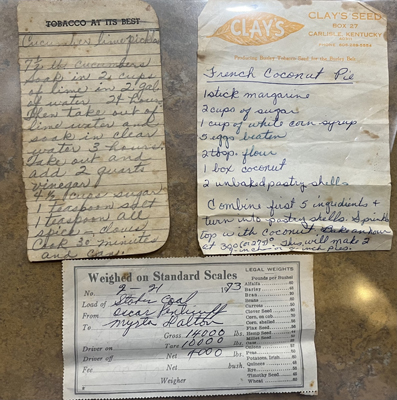 TOBACCO AT ITS BEST
Cucumber lime pickle
7 lb cucumbers
soak in 2 cups
of lime in 2 gal
of water 24 hours
then take out of
lime water and
soak in clear
water 3 hours.
take out and
add 2 quarts
vinegar
4½ cups sugar
1 teaspoon salt
1 teaspoon all
spice - cloves
Cook 30 minutes
and can.
CLAY'S
CLAY'S SEED
BOX 27
CARLISLE, KENTUCKY
French Coconut Pie
1 stick margarine
2 cups of sugar
1 cup of white corn syrup
5 eggs beaten
2 tbsp. flour
1 box coconut
2 unbaked pastry shells
Combine first 5 ingredients &
turn into pastry shells. Sprinkle
top with coconut. Bake an hour
at 300 This will make 2
pies.
Weighed on Standard Scales
No. 2-21 1973
Load of Stoker Coal
From Oscar
To Myrta Dalton
Gross 14000 lbs.
Driver on Tare 10000 lbs.
Driver off Net 4000 lbs.
Fee Net bush
Weigher
LEGAL WEIGHTS
Pounds per Bushel
Alfalfa
Barley
Bran
Beans
Currents
Clover Seed
Corn, on cob
Corn, shelled
Flax Seed
Hemp Seed
Millet Seed
Oats
Onions
Peas
Potatoes, Irish
Quinces
Rye
Timothy Seed
Wheat